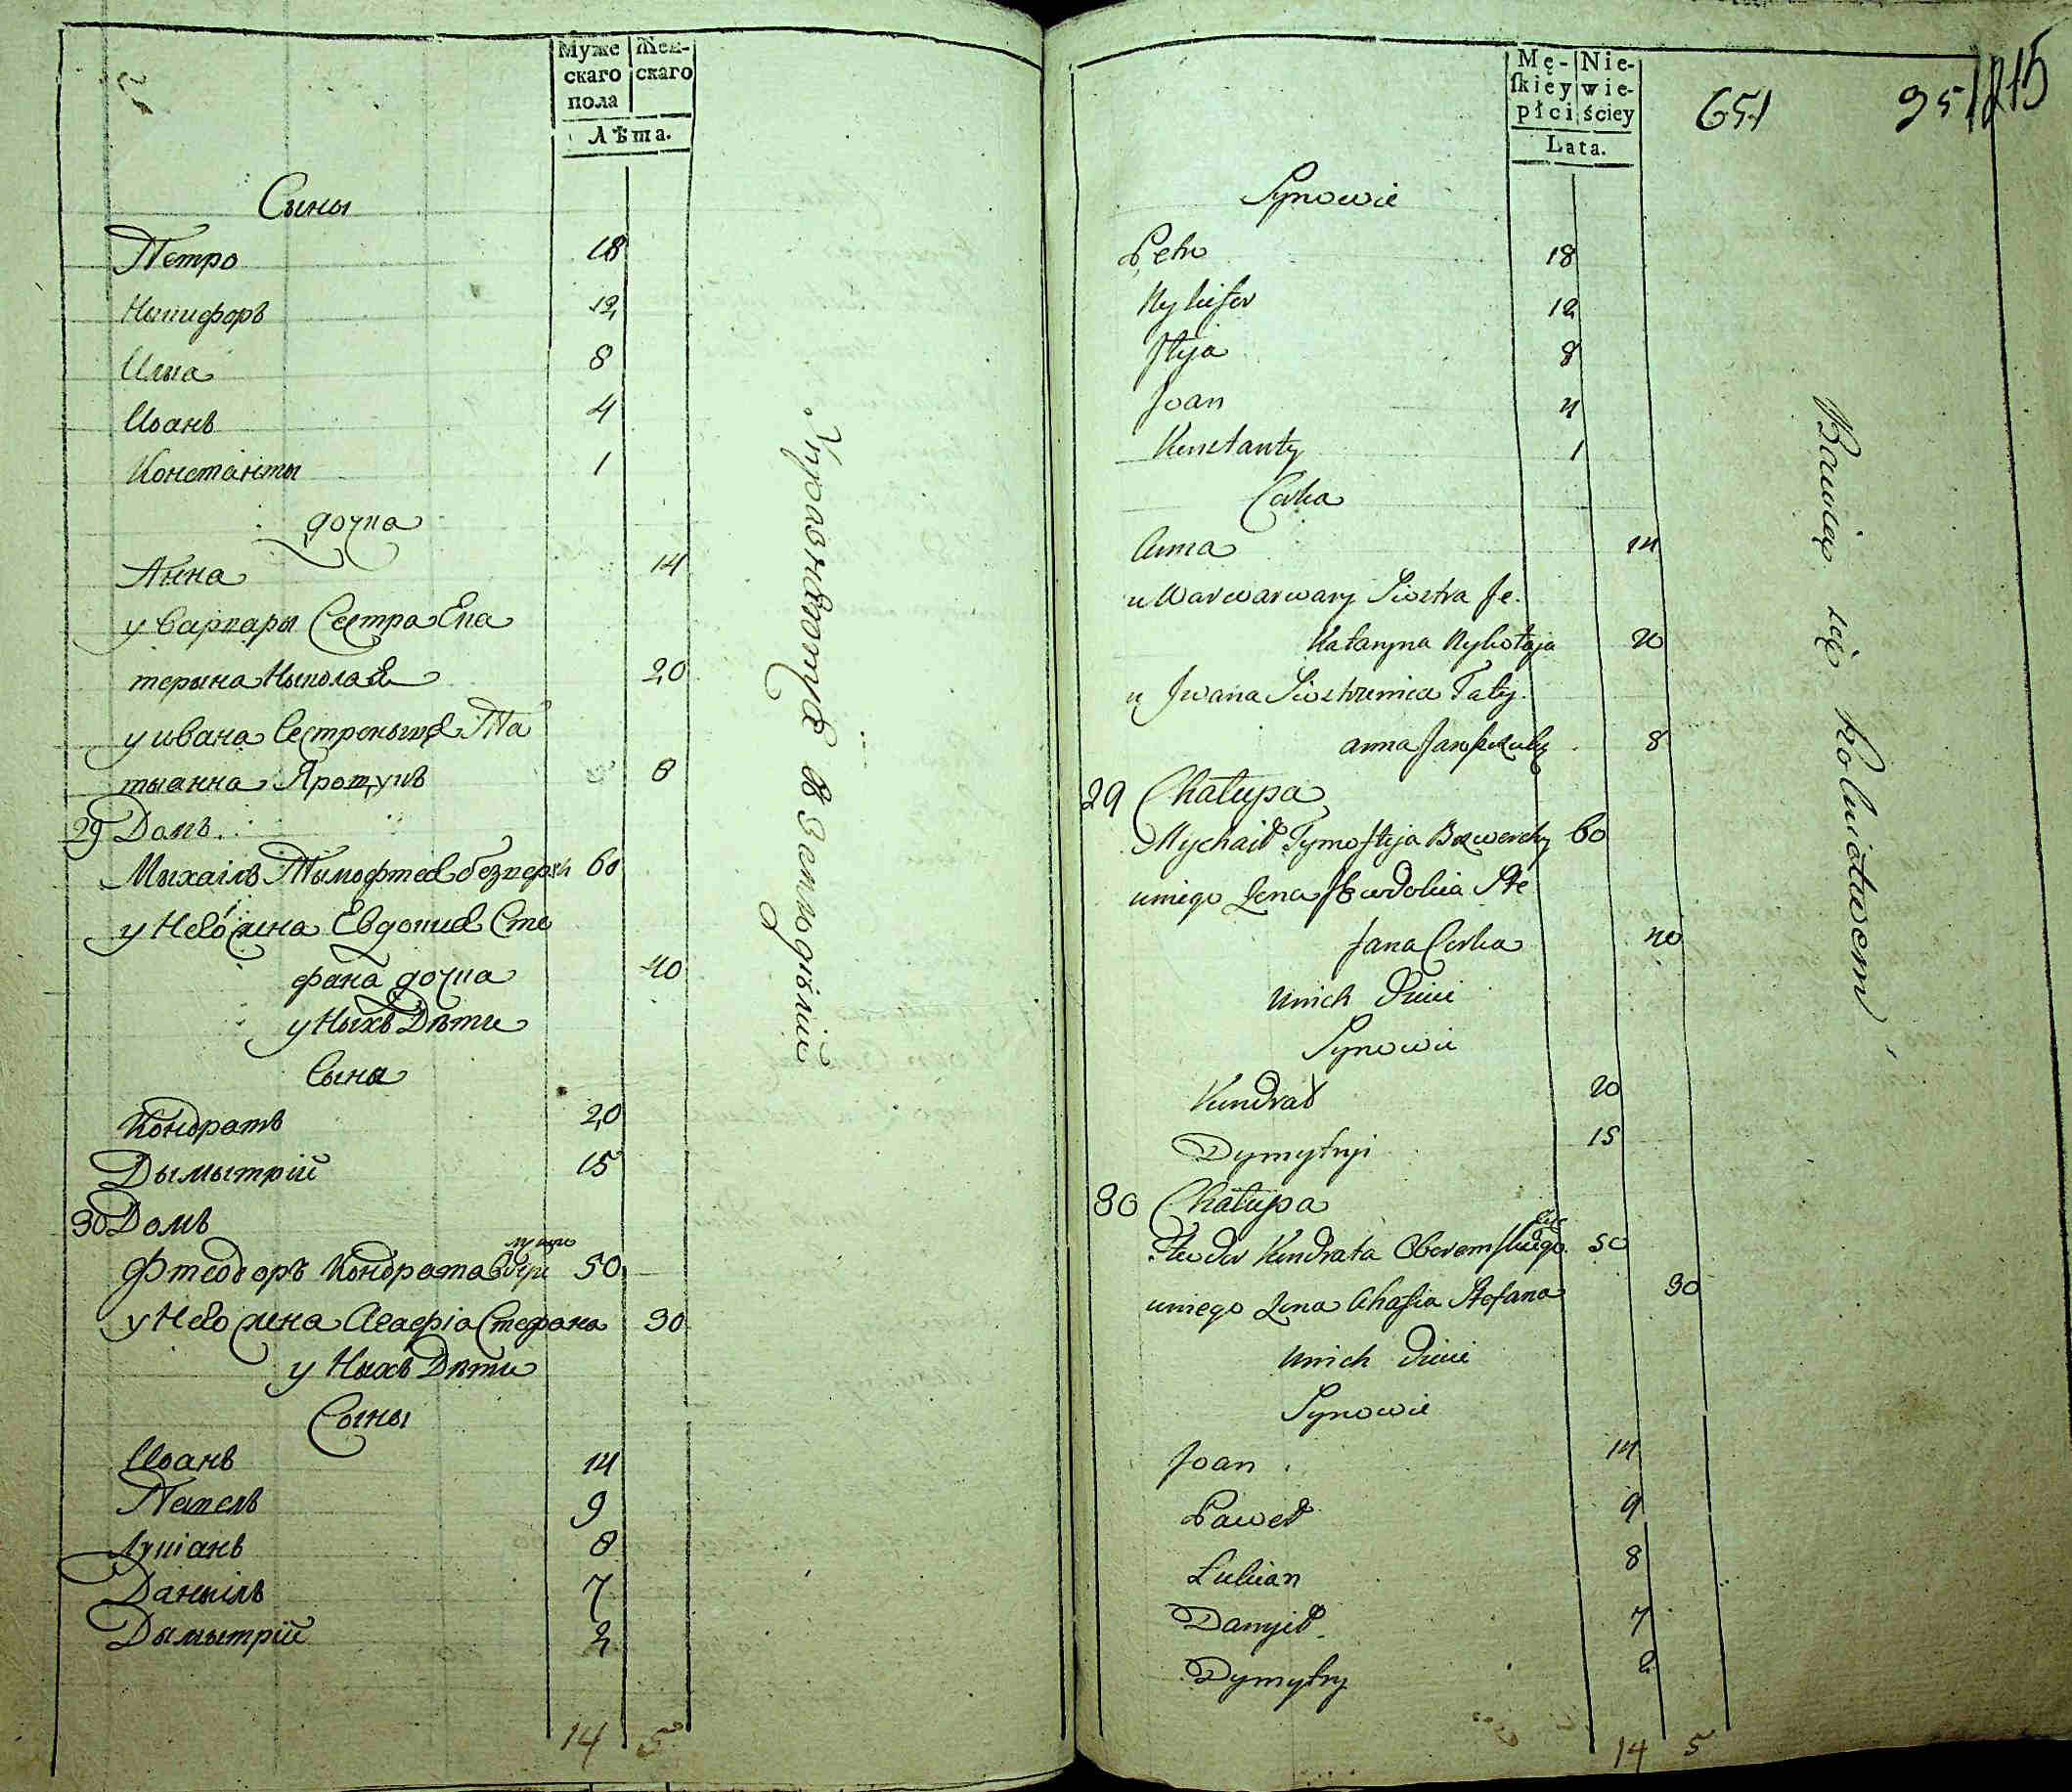 Муже
скаго
пола
Жен-
скаго
Лѣта.
Сыны
Петро 18
Никифоръ 12
Илиа 8
Иоанъ 4
Константы 1
дочка
Анна 14
у Варвары Сестра Ека
терына Ныколая 20
у ивана Сестроныця Та
тыанна Ярощукъ 8
29 Домъ
Мыхаілъ Тымофтея безверхи 60
у Него жена Евдокия Сте
фана дочка 40
у Ныхъ Дѣти
Сына
Кондратъ 20
Дымытрій 15
30 Домъ
Фтеодоръ Кондрата 50
у Него жена Агафіа Стефана 30
у Ныхъ Дѣти
Сыны
Иоанъ 14
Павелъ 9
Лукіанъ 8
Даныілъ 7
Дымытрій 2
14 5
Упражняютця в Земледѣліи
Mę-
skiey
płci
Nie-
wie-
ściey
Lata.
651
95
1215
Synowie
Petro 18
Nykifor 12
Iłyja 8
Joan 4
Kunstanty 1
Corka
Anna 14
u Warwarwary Siostra Je.
Kataryna Nykołaja 20
u Jwana Siostrzenica Taty.
anna Jaroszczuky 8
29 Chałupa
Mychaił Tymoftyja Bezwerchy 60
u niego żona Jewdokia Ste
fana Corka 40
u nich Dzieci
Synowie
Kundrat 20
Dymytryi 15
30 Chałupa
Fteodor Kundrata 50
u niego żona Ahafia Stefana 30
u nich Dzieci
Synowie
Joan 14
Paweł 9
Łukian 8
Danyił 7
Dymytry 2
14 5
Bawią się Rolnictwem